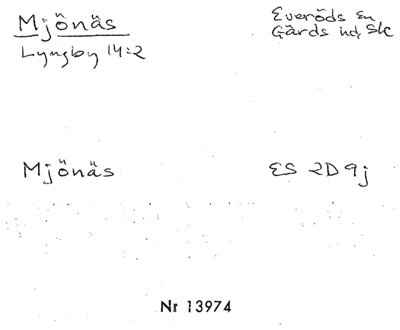 Mjönäs
Lyngby 14:2
Everöds sn
Gärds hd, Sk
Mjönäs
ES 2D 9j
Nr 13974